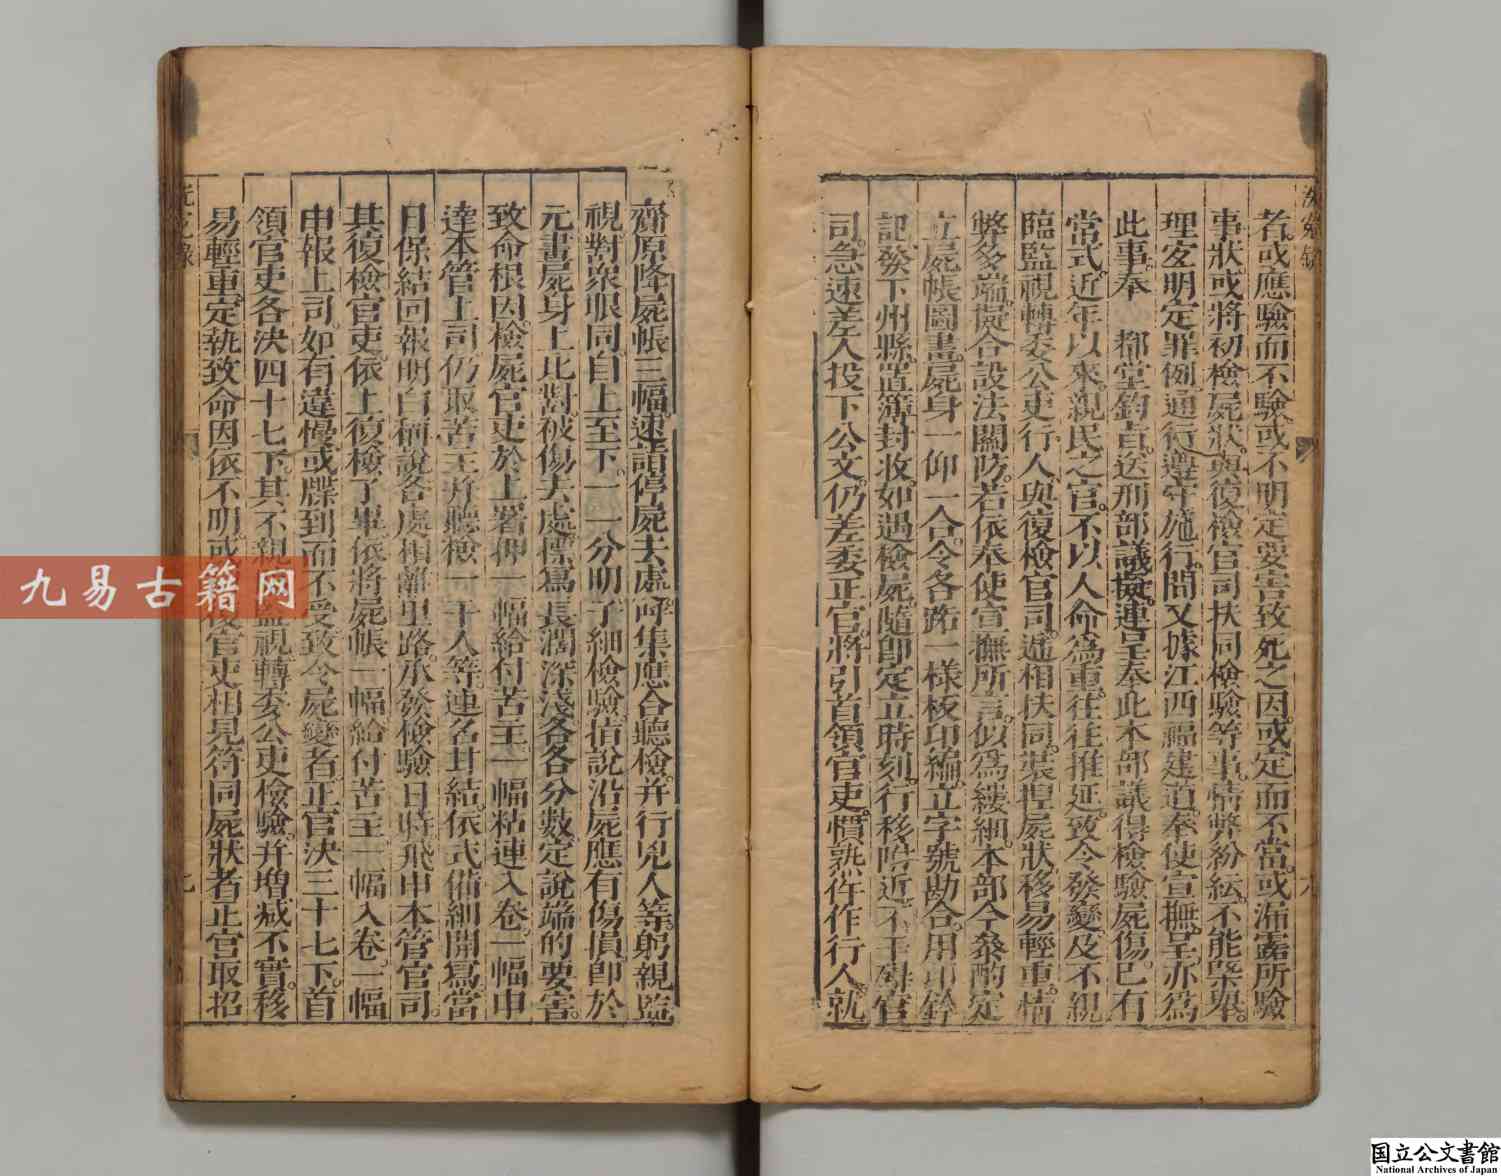 洗冤錄
者或應驗而不驗或不明定要害致死之因或定而不當或漏露所驗
事狀或將初檢屍狀與復檢官司扶同檢驗等事情弊紛紜不能槩舉
理宜明定罪例通行遵守施行問又據江西福建道奉使宣撫呈亦爲
此事奉 都堂鈞旨送刑部議擬連呈奉此本部議得檢驗屍傷已有
當式近年以來親民之官不以人命爲重往往推延致令發變及不親
臨監視轉委公吏行人與復檢官司遞相扶同裝捏屍狀移易輕重情
弊多端擬合設法關防若依奉使宣撫所言似爲縷細本部今叅酌定
立屍帳圖畫屍身一仰一合令各路一樣板印編立字號勘合用印鈐
記發下州縣置簿封收如遇檢屍隨卽定立時刻行移附近不干碍官
司急速差人投下公文仍差委正官將引首領官吏慣熟仵作行人就
齎原降屍帳三幅速詣停屍去處呼集應合聽檢并行兇人等躬親監
視對衆眼同自上至下一一分明子細檢驗指說沿屍應有傷損卽於
元畫屍身上比對被傷去處標寫長濶深淺各各分數定說端的要害
致命根因檢屍官吏於上署押一幅給付苦主一幅粘連入卷一幅申
達本管上司仍取苦主并聽檢一干人等連名甘結依式備細開寫當
日保結回報明白稱說各處相離里路承發檢驗日時飛申本管官司
其復檢官吏依上復檢了畢依將屍帳一幅給付苦主一幅入卷一幅
申報上司如有違慢或牒到而不受致令屍變者正官決三十七下首
領官吏各決四十七下其不親監視轉委公吏儉驗并增减不實移
易輕重定執致命因依不明或復官吏相見符同屍狀者正官取招
九易古籍网
国立公文書館
National Archives of Japan